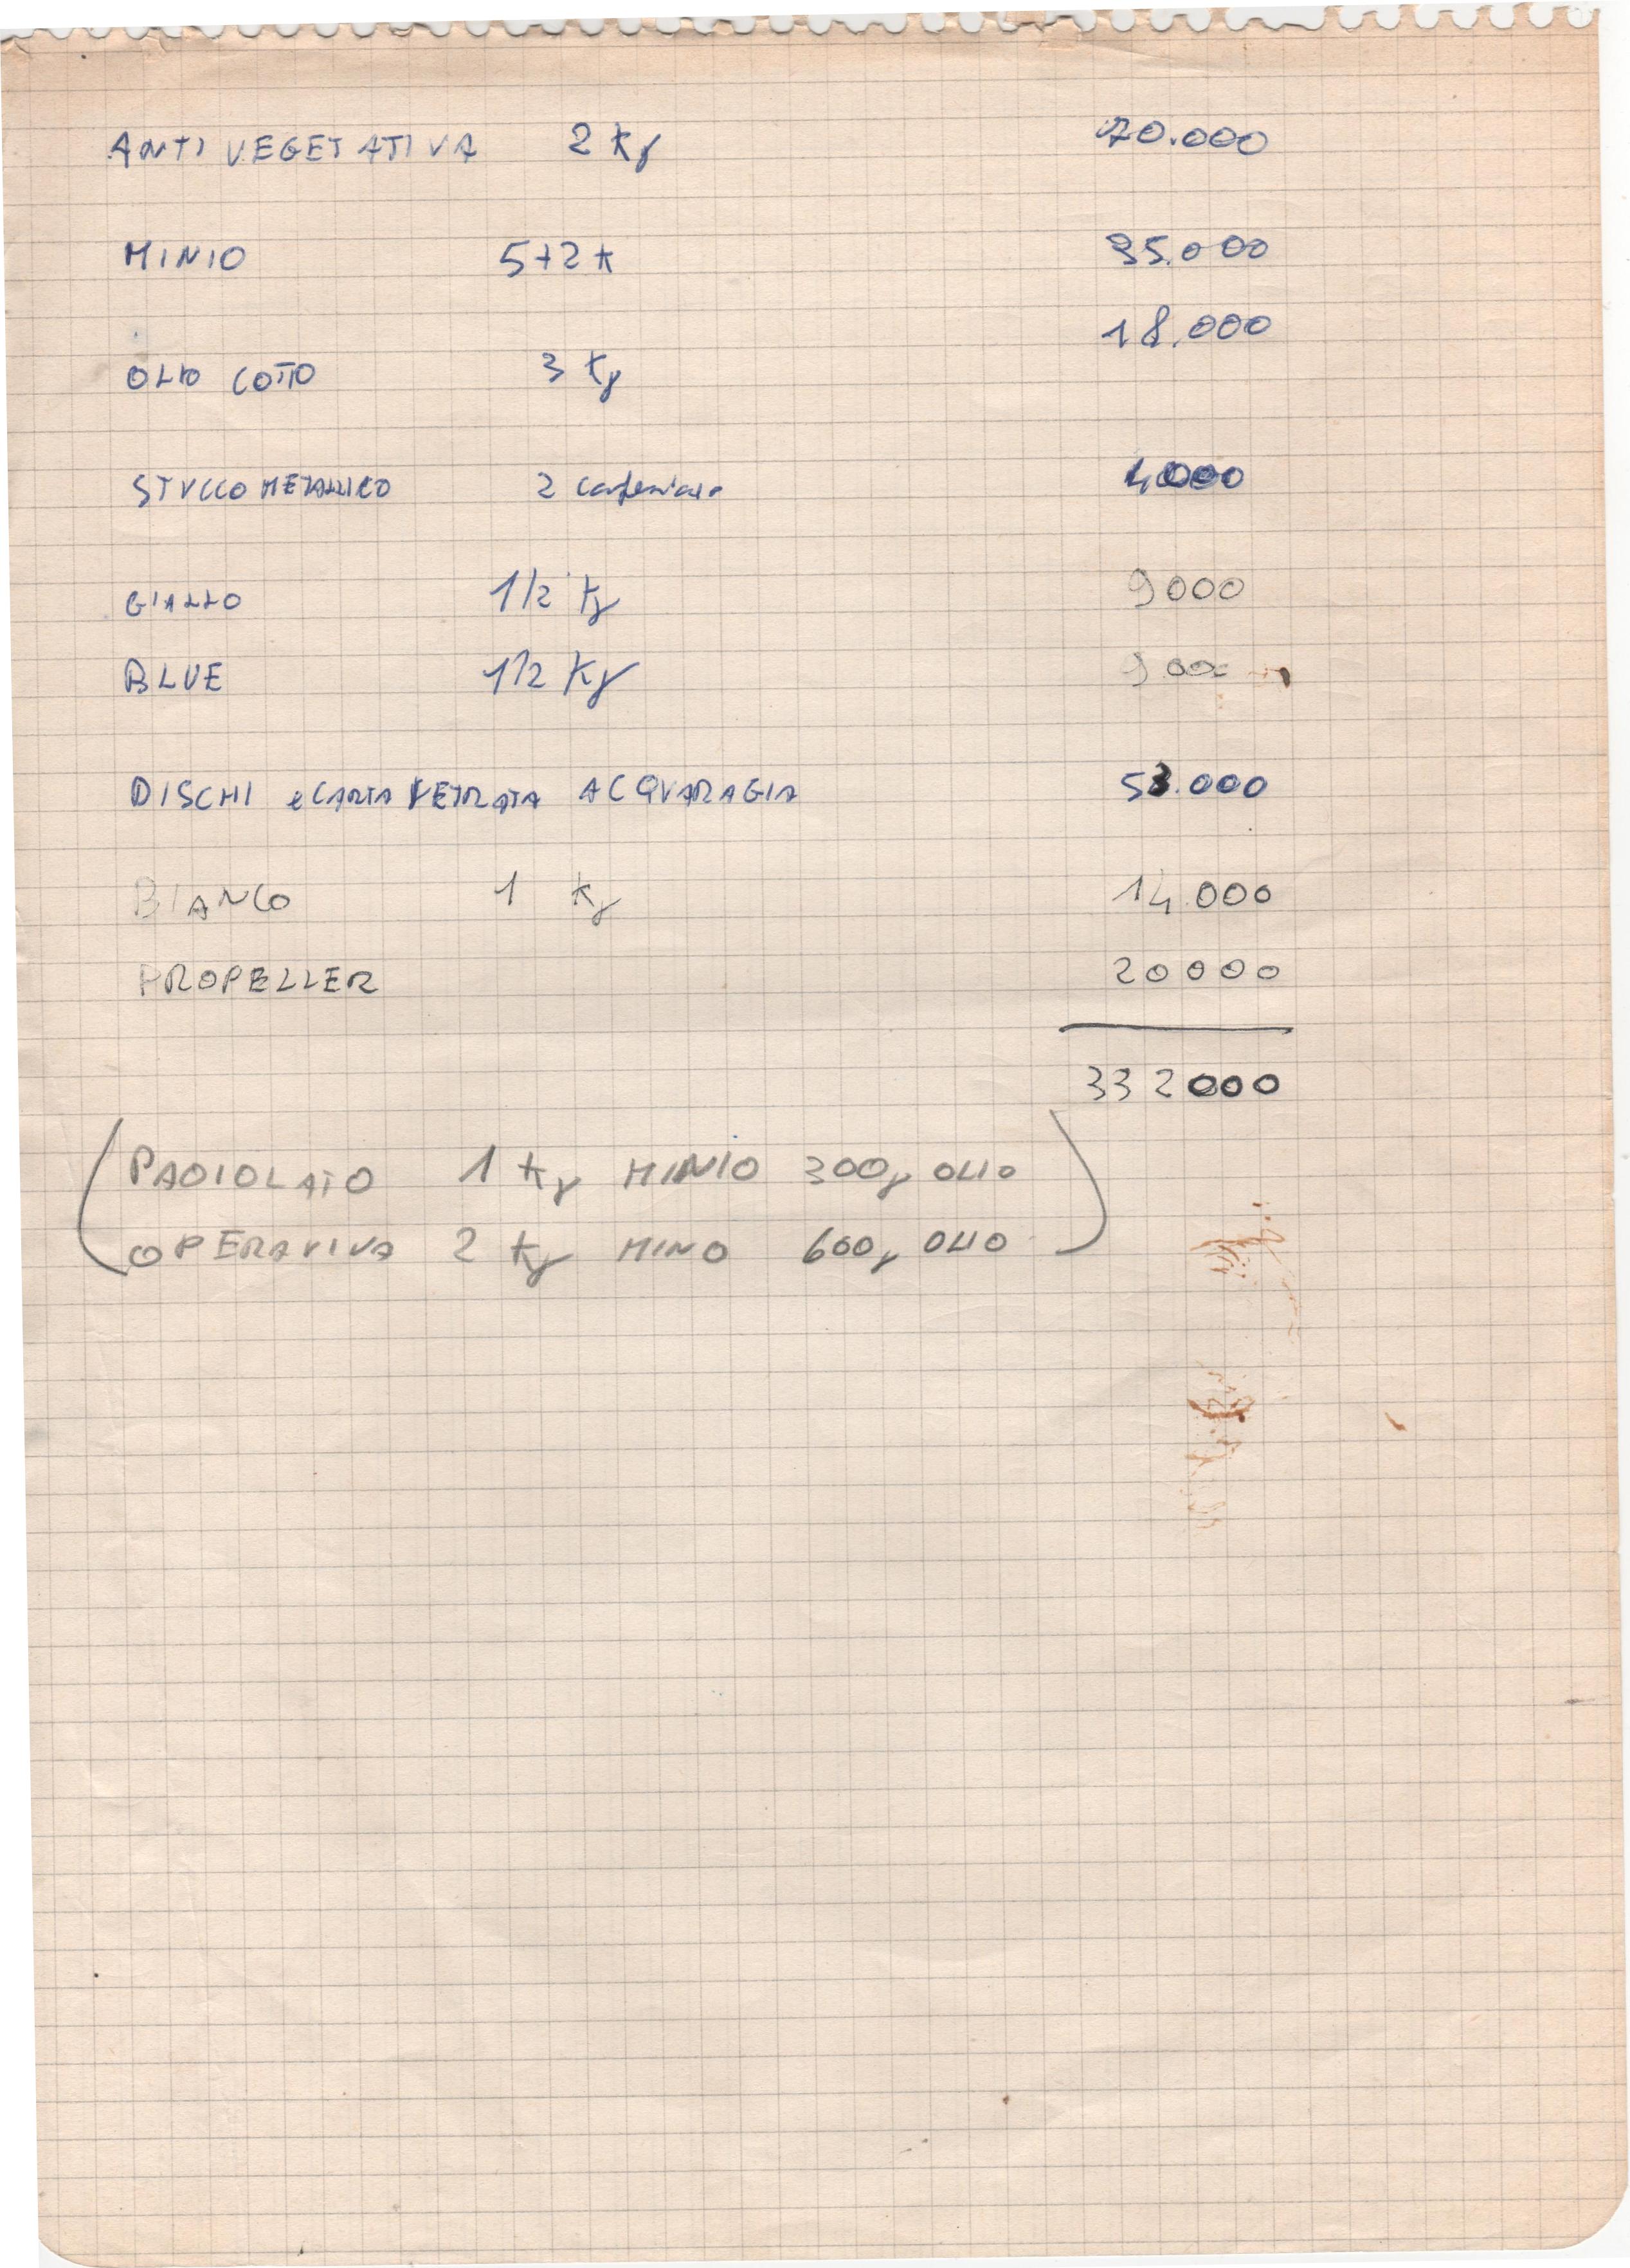 ANTIVEGETATIVA 2 Kg 70.000
MINIO 5+2 K 95.000
18.000
OLIO COTTO 3 Kg
STUCCO METALLICO 2 confezioni 4000
GIALLO 1/2 Kg 9000
BLUE 1/2 Kg 9000
DISCHI e CARTA VETRATA ACQUARAGIA 53.000
BIANCO 1 Kg 14.000
PROPELLER 20000
332000
(PAOIOLATO 1 Kg MINIO 300g OLIO
OPERAVIVA 2 Kg MINO 600g OLIO)